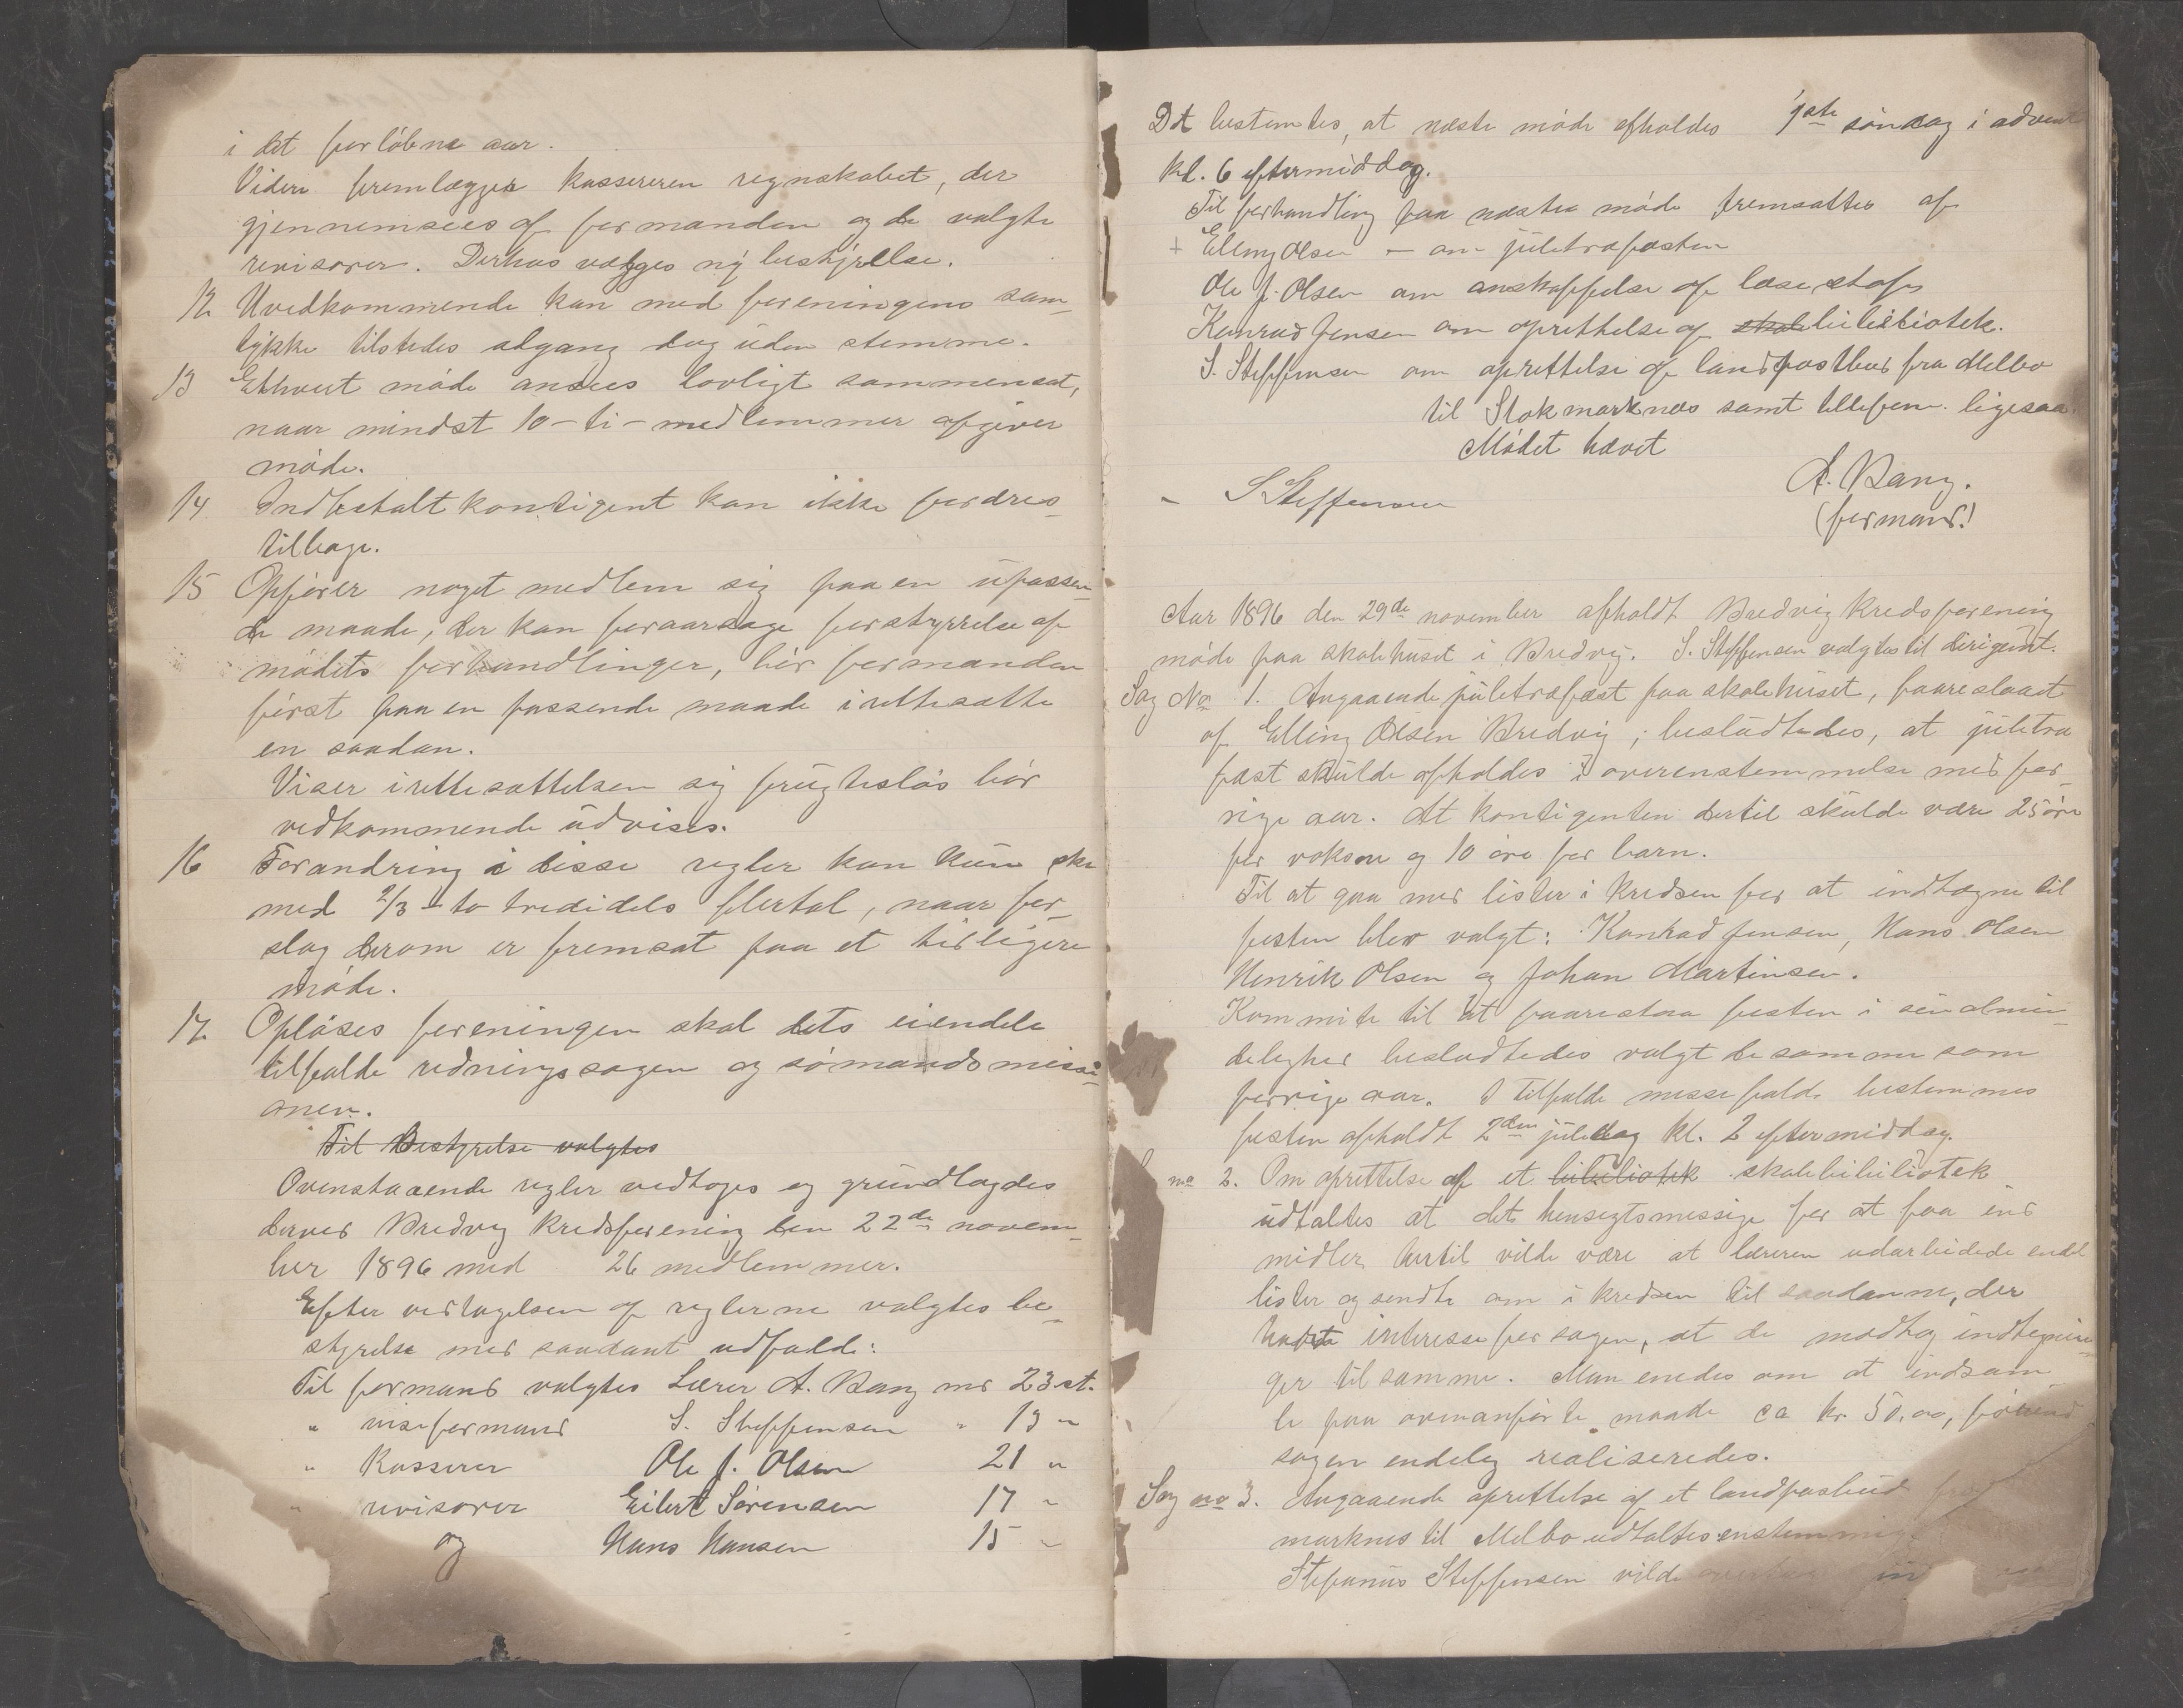 i det forløbne aar.
Videre fremlægger kassereren regnskabet, der
gjennemsees af formanden og de valgte
revisorer. Derhos vælges ny bestyrelse.
12 Uvedkommende kan med foreningens sam-
tykke tilstedes adgang dog uden stemme.
13 Ethvert møde ansees lovligt sammensat,
naar mindst 10 - ti - medlemmer afgiver
møde.
14 Indbetalt kontigent kan ikke fordres
tilbage.
15 Opfører noget medlem sig paa en upassen-
de maade, der kan foraarsage forstyrrelse af
mødets forhandlinger, bør formanden
først paa en passende maade irettesætte
en saadan.
Viser irettesættelsen sig frugtesløs bør
vedkommende udvises.
16 Forandring i disse regler kan kun ske
med 2/3 - to tredidels flertal, naar for-
slag derom er fremsat paa et tidligere
møde.
17. Opløses foreningen skal dets eiendele
tilfalde redningssagen og sømandsmissi-
onen.
Til Bestyrelse valgtes
Ovenstaaende regler vedtoges og grundlagdes
derved Bredvig kredsforening den 22de novem-
ber 1896 med 26 medlemmer.
Efter vedtagelsen af reglerne valgtes be-
styrelse med saadant udfald:
Til formand valgtes Lærer A. Bang med 23 st.
" viseformand S. Steffensen " 13 "
" Kasserer Ole J. Olsen 21 "
" revisorer Eilert Sørensen 17 "
og Hans Hansen 15 "
Det bestemtes, at næste møde afholdes 1ste søndag i advent
kl. 6 eftermiddag.
Til forhandling paa næste møde fremsattes af
+ Elling Olsen - om juletræfæsten
Ole J. Olsen om anskaffelse af læsestof
Konrad Jensen om oprettelse af skolebibliotek.
S. Steffensen om oprettelse af landpostbud fra Melbo
til Stokmarknes samt tellefon ligesaa.
Mødet hævet
A. Bang.
S Steffensen
(formand)
Aar 1896 den 29de november afholdt Bredvig kredsforening
møde paa skolehuset i Bredvig. S. Steffensen valgtes til dirigent.
Sag No 1. Angaaende juletræfæst paa skolehuset, foareslaaet
af Elling Olsen Bredvig; besludtedes, at juletræ
fæst skulde afholdes i overenstemmelse med for-
rige aar. At kontigenten dertil skulde være 25 øre
for voksne og 10 øre for barn.
Til at gaa med lister i kredsen for at indtegne til
festen blev valgt: Konrad Jensen, Hans Olsen
Henrik Olsen og Johan Martinsen.
Kommite til at foarestaa festen i sin almin-
delighed besludtedes valgt de samme som
forrige aar. I tilfælde messefald bestemmes
festen afholdt 2den juledag kl. 2 eftermiddag.
no 2. Om oprettelse af et bibeliotek skolebibiliotek
udtaltes at det hensegtsmessige for at faa ind
midler hertil vilde være at læreren udarbeidede endel
lister og sendte om i kredsen til saadanne, der
havde interesse for sagen, at de modtog indtegnin-
ger til samme. Man enedes om at indsam
le paa ovenanførte maade ca kr. 50,00, førend
sagen endelig realiseredes.
Sag no 3. Angaaende oprettelse af et landpostbud
marknes til Melbo udtaltes enstemmig
Stefanus Steffensen vilde